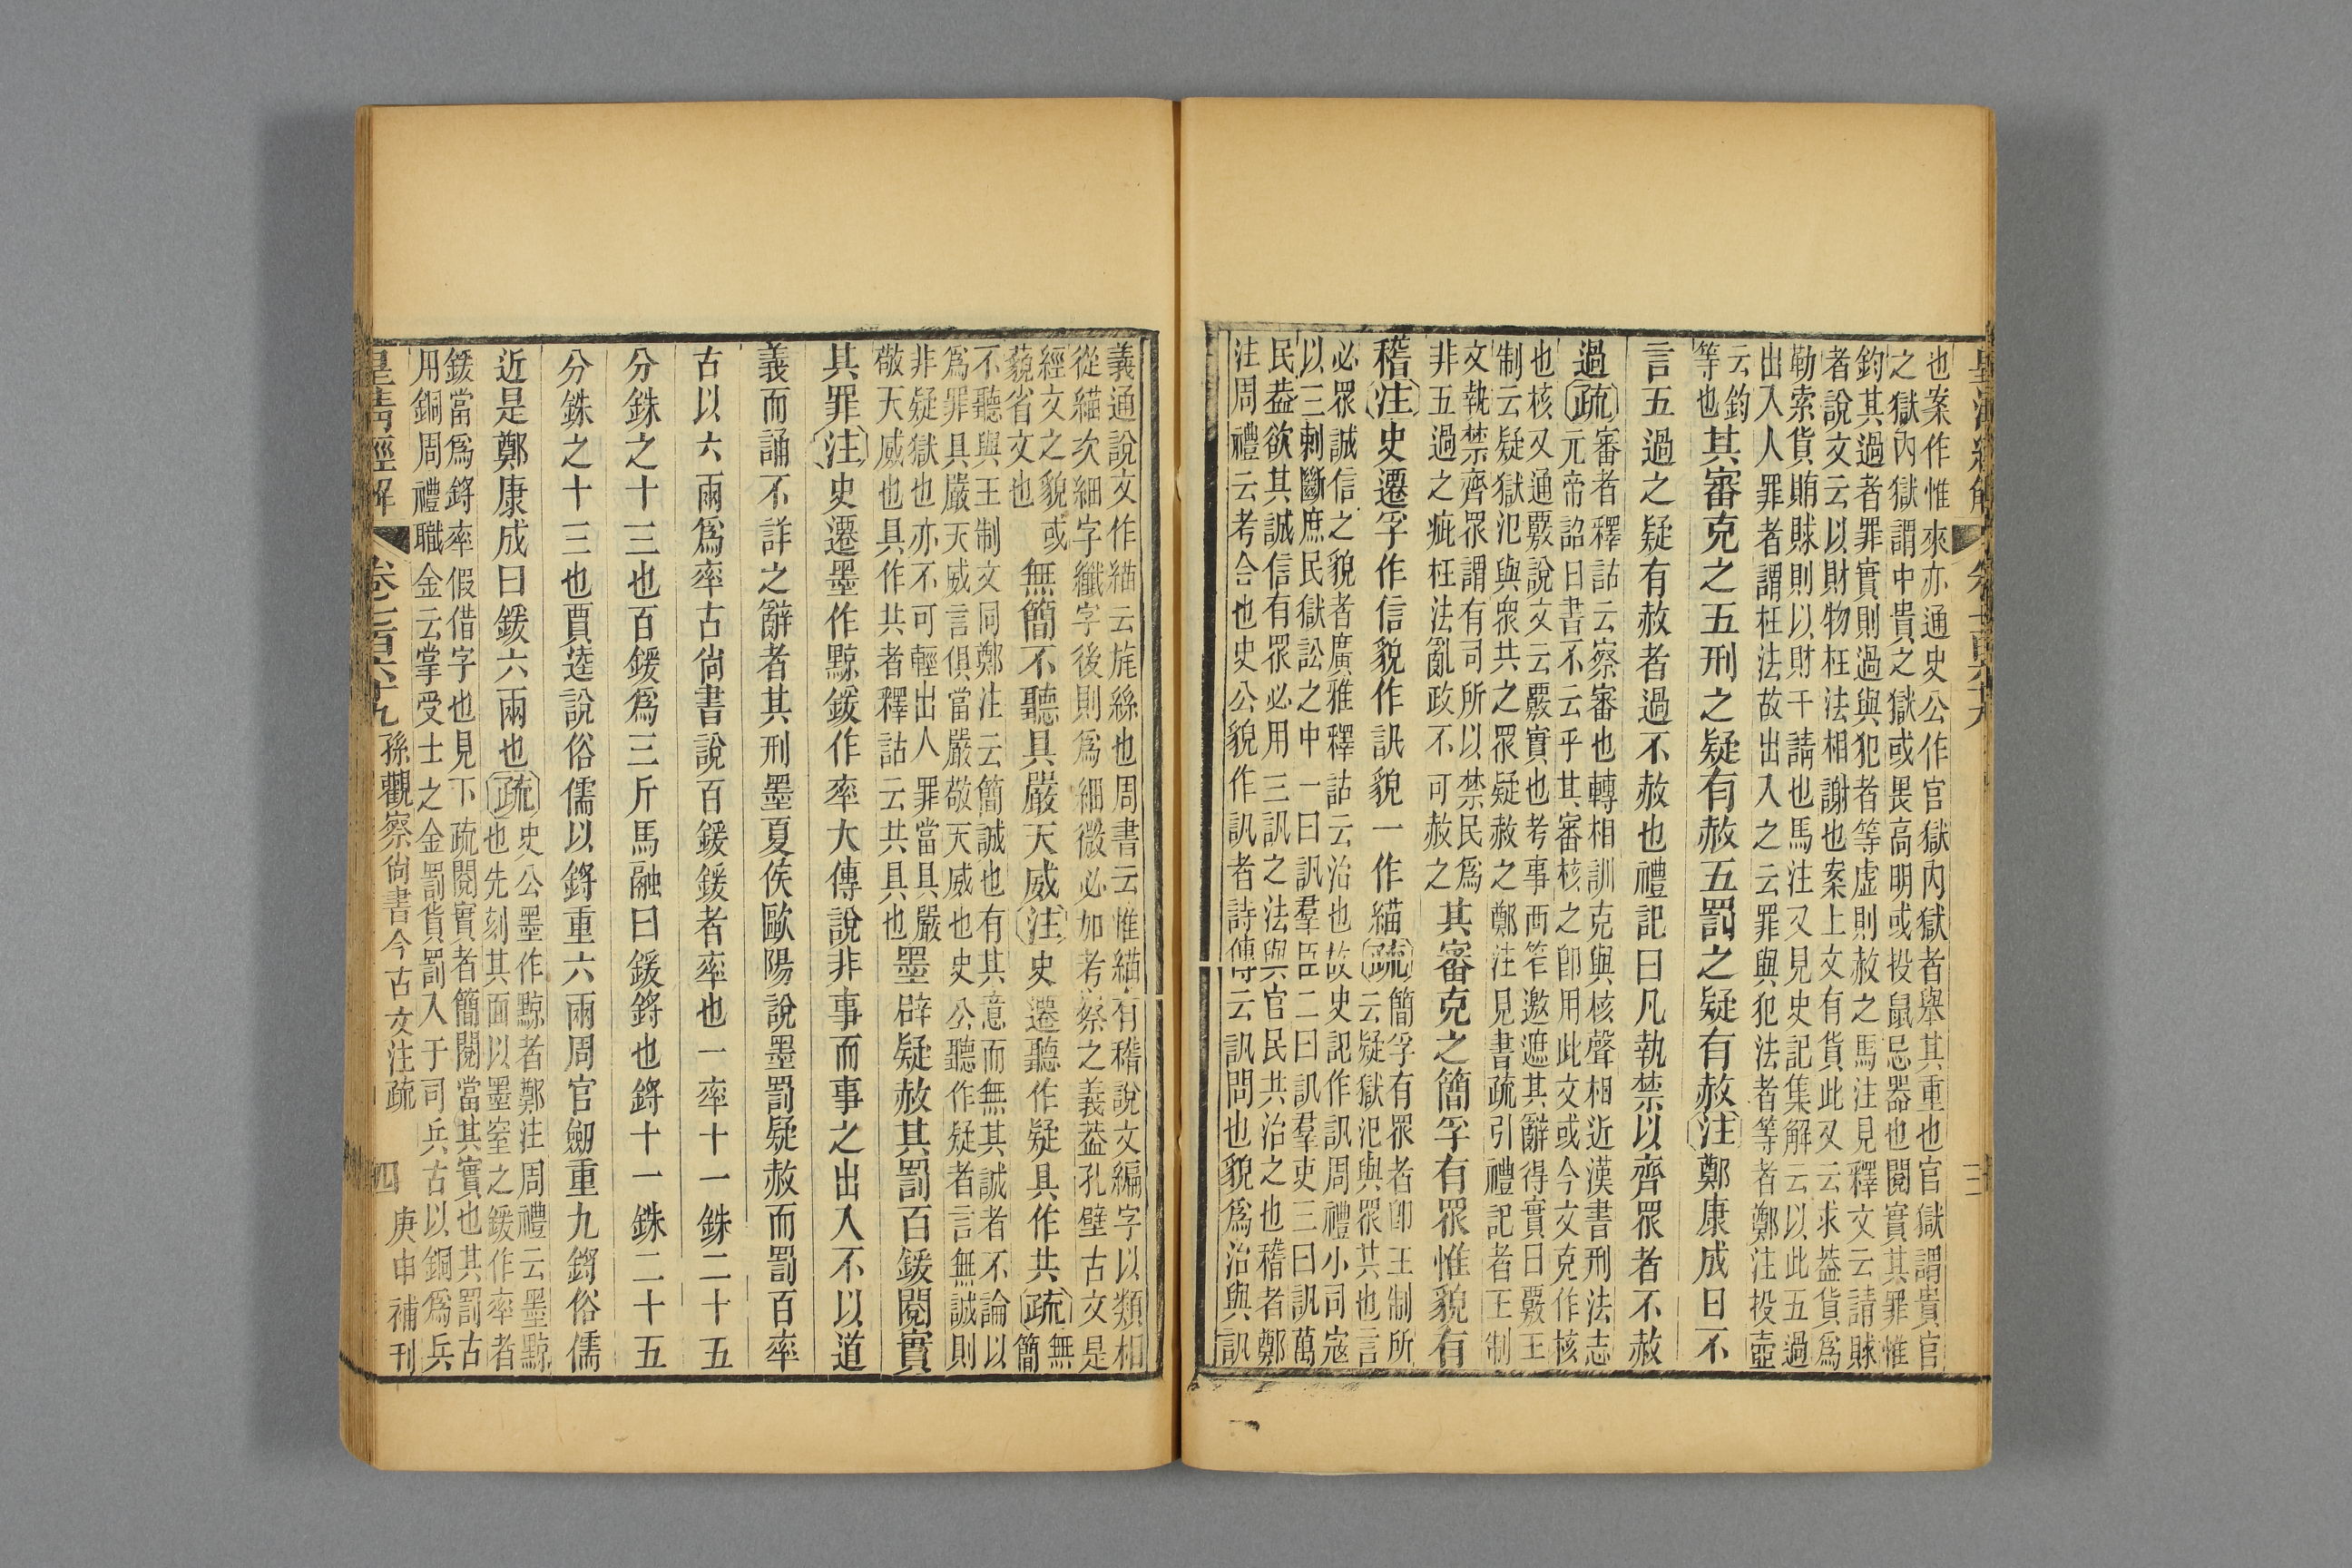 皇清經解
卷七百六十九
三
也案作惟來亦通史公作官獄內獄者舉其重也官獄謂貴官
之獄內獄謂中貴之獄或畏高明或投鼠忌器也閱實其罪惟
鈞其過者罪實則過與犯者等虛則赦之馬注見釋文云請賕
者說文云以財物枉法相謝也案上文有貨此又云求葢貨爲
勒索貨賄賕則以財干請也馬注又見史記集解云以此五過
出入人罪者謂枉法故出入之云罪與犯法者等者鄭注投壺
云鈞
等也
其審克之五刑之疑有赦五罰之疑有赦注鄭康成曰不
言五過之疑有赦者過不赦也禮記曰凡執禁以齊眾者不赦
過疏
審者釋詁云察審也轉相訓克與核聲相近漢書刑法志
元帝詔曰書不云乎其審核之卽用此文或今文克作核
也核又通覈說文云覈實也考事襾笮邀遮其辭得實曰覈王
制云疑獄汜與眾共之眾疑赦之鄭注見書疏引禮記者王制
文執禁齊眾謂有司所以禁民爲
非五過之疵枉法亂政不可赦之
其審克之簡孚有眾惟貌有
稽注史遷孚作信貌作訊貌一作緢疏
簡孚有眾者卽王制所
云疑獄汜與眾共也言
必眾誠信之貌者廣雅釋詁云治也故史記作訊周禮小司寇
以三刺斷庶民獄訟之中一曰訊羣臣二曰訊羣吏三曰訊萬
民葢欲其誠信有眾必用三訊之法與官民共治之也稽者鄭
注周禮云考合也史公貌作訊者詩傳云訊問也貌爲治與訊
義通說文作緢云旄絲也周書云惟緢有稽說文編字以類相
從緢次細字纖字後則爲細微必加考察之義葢孔壁古文是
經文之貌或
藐省文也
無簡不聽具嚴天威注史遷聽作疑具作共疏
無
簡
不聽與王制文同鄭注云簡誠也有其意而無其誠者不論以
爲罪具嚴天威言俱當嚴敬天威也史公聽作疑者言無誠則
非疑獄也亦不可輕出人罪當具嚴
敬天威也具作共者釋詁云共具也
墨辟疑赦其罰百鍰閱實
其罪注史遷墨作黥鍰作率大傳說非事而事之出入不以道
義而誦不詳之辭者其刑墨夏侯歐陽說墨罰疑赦而罰百率
古以六兩爲率古尙書說百鍰鍰者率也一率十一銖二十五
分銖之十三也百鍰爲三斤馬融曰鍰鋝也鋝十一銖二十五
分銖之十三也賈逵說俗儒以鋝重六兩周官劒重九鋝俗儒
近是鄭康成曰鍰六兩也疏
史公墨作黥者鄭注周禮云墨黥
也先刻其面以墨窒之鍰作率者
鍰當爲鋝率假借字也見下疏閱實者簡閱當其實也其罰古
用銅周禮職金云掌受士之金罰貨罰入于司兵古以銅爲兵
皇清經解
卷七百六十九
孫觀察尙書今古文注疏
四
庚申補刊